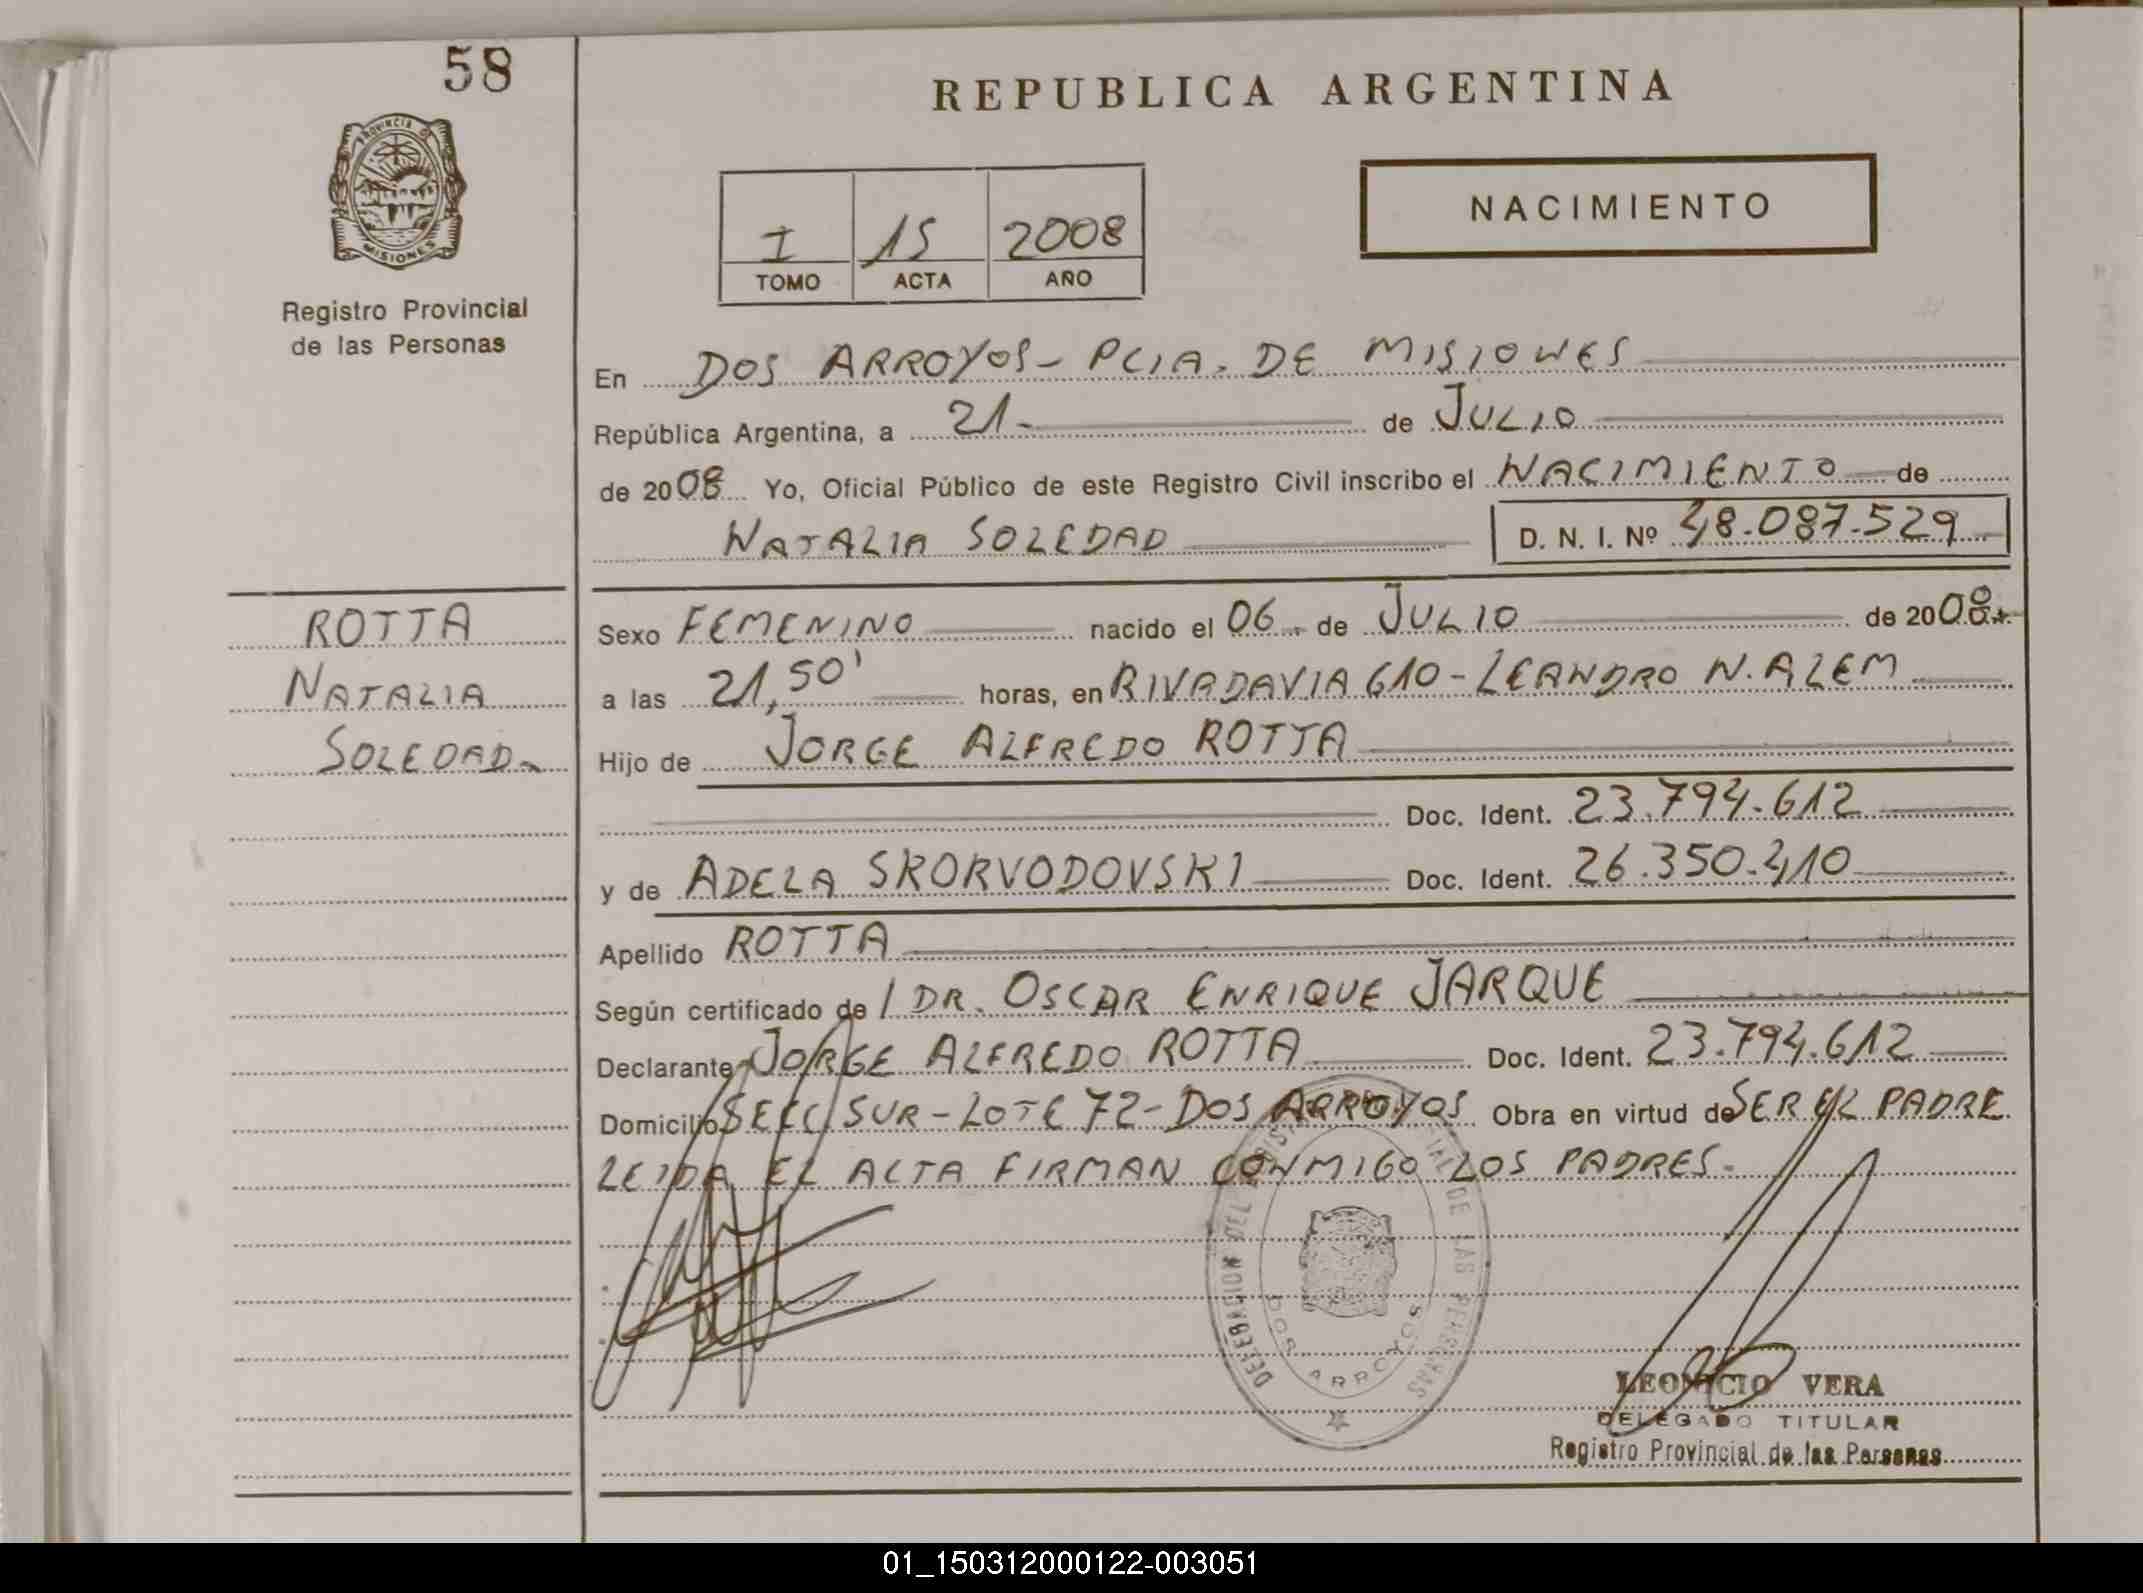 58
REPUBLICA ARGENTINA
PROVINCIA D
MISIONES
NACIMIENTO
I 15 2008
TOMO ACTA AÑO
Registro Provincial
de las Personas
En DOS ARROYOS - PCIA. DE MISIONES
República Argentina, a 21- de JULIO
de 2008 Yo, Oficial Público de este Registro Civil inscribo el NACIMIENTO de
NATALIA SOLEDAD D. N. I. Nº 48.087.529
ROTTA
NATALIA
SOLEDAD
Sexo FEMENINO nacido el 06 de JULIO de 2008
a las 21,50' horas, en RIVADAVIA 610 - LEANDRO N. ALEM
Hijo de JORGE ALFREDO ROTTA
Doc. Ident. 23.794.612
y de ADELA SKORVODOVSKI Doc. Ident. 26.350.410
Apellido ROTTA
Según certificado de / DR. OSCAR ENRIQUE JARQUE
Declarante JORGE ALFREDO ROTTA Doc. Ident. 23.794.612
Domicilio SECC SUR - LOTE 72 - DOS ARROYOS Obra en virtud de SER EL PADRE
LEIDA EL ACTA FIRMAN CONMIGO LOS PADRES.
DE LAS PERSONAS
DOS ARROYOS
LEONICIO VERA
DELEGADO TITULAR
Registro Provincial de las Personas
01_150312000122-003051